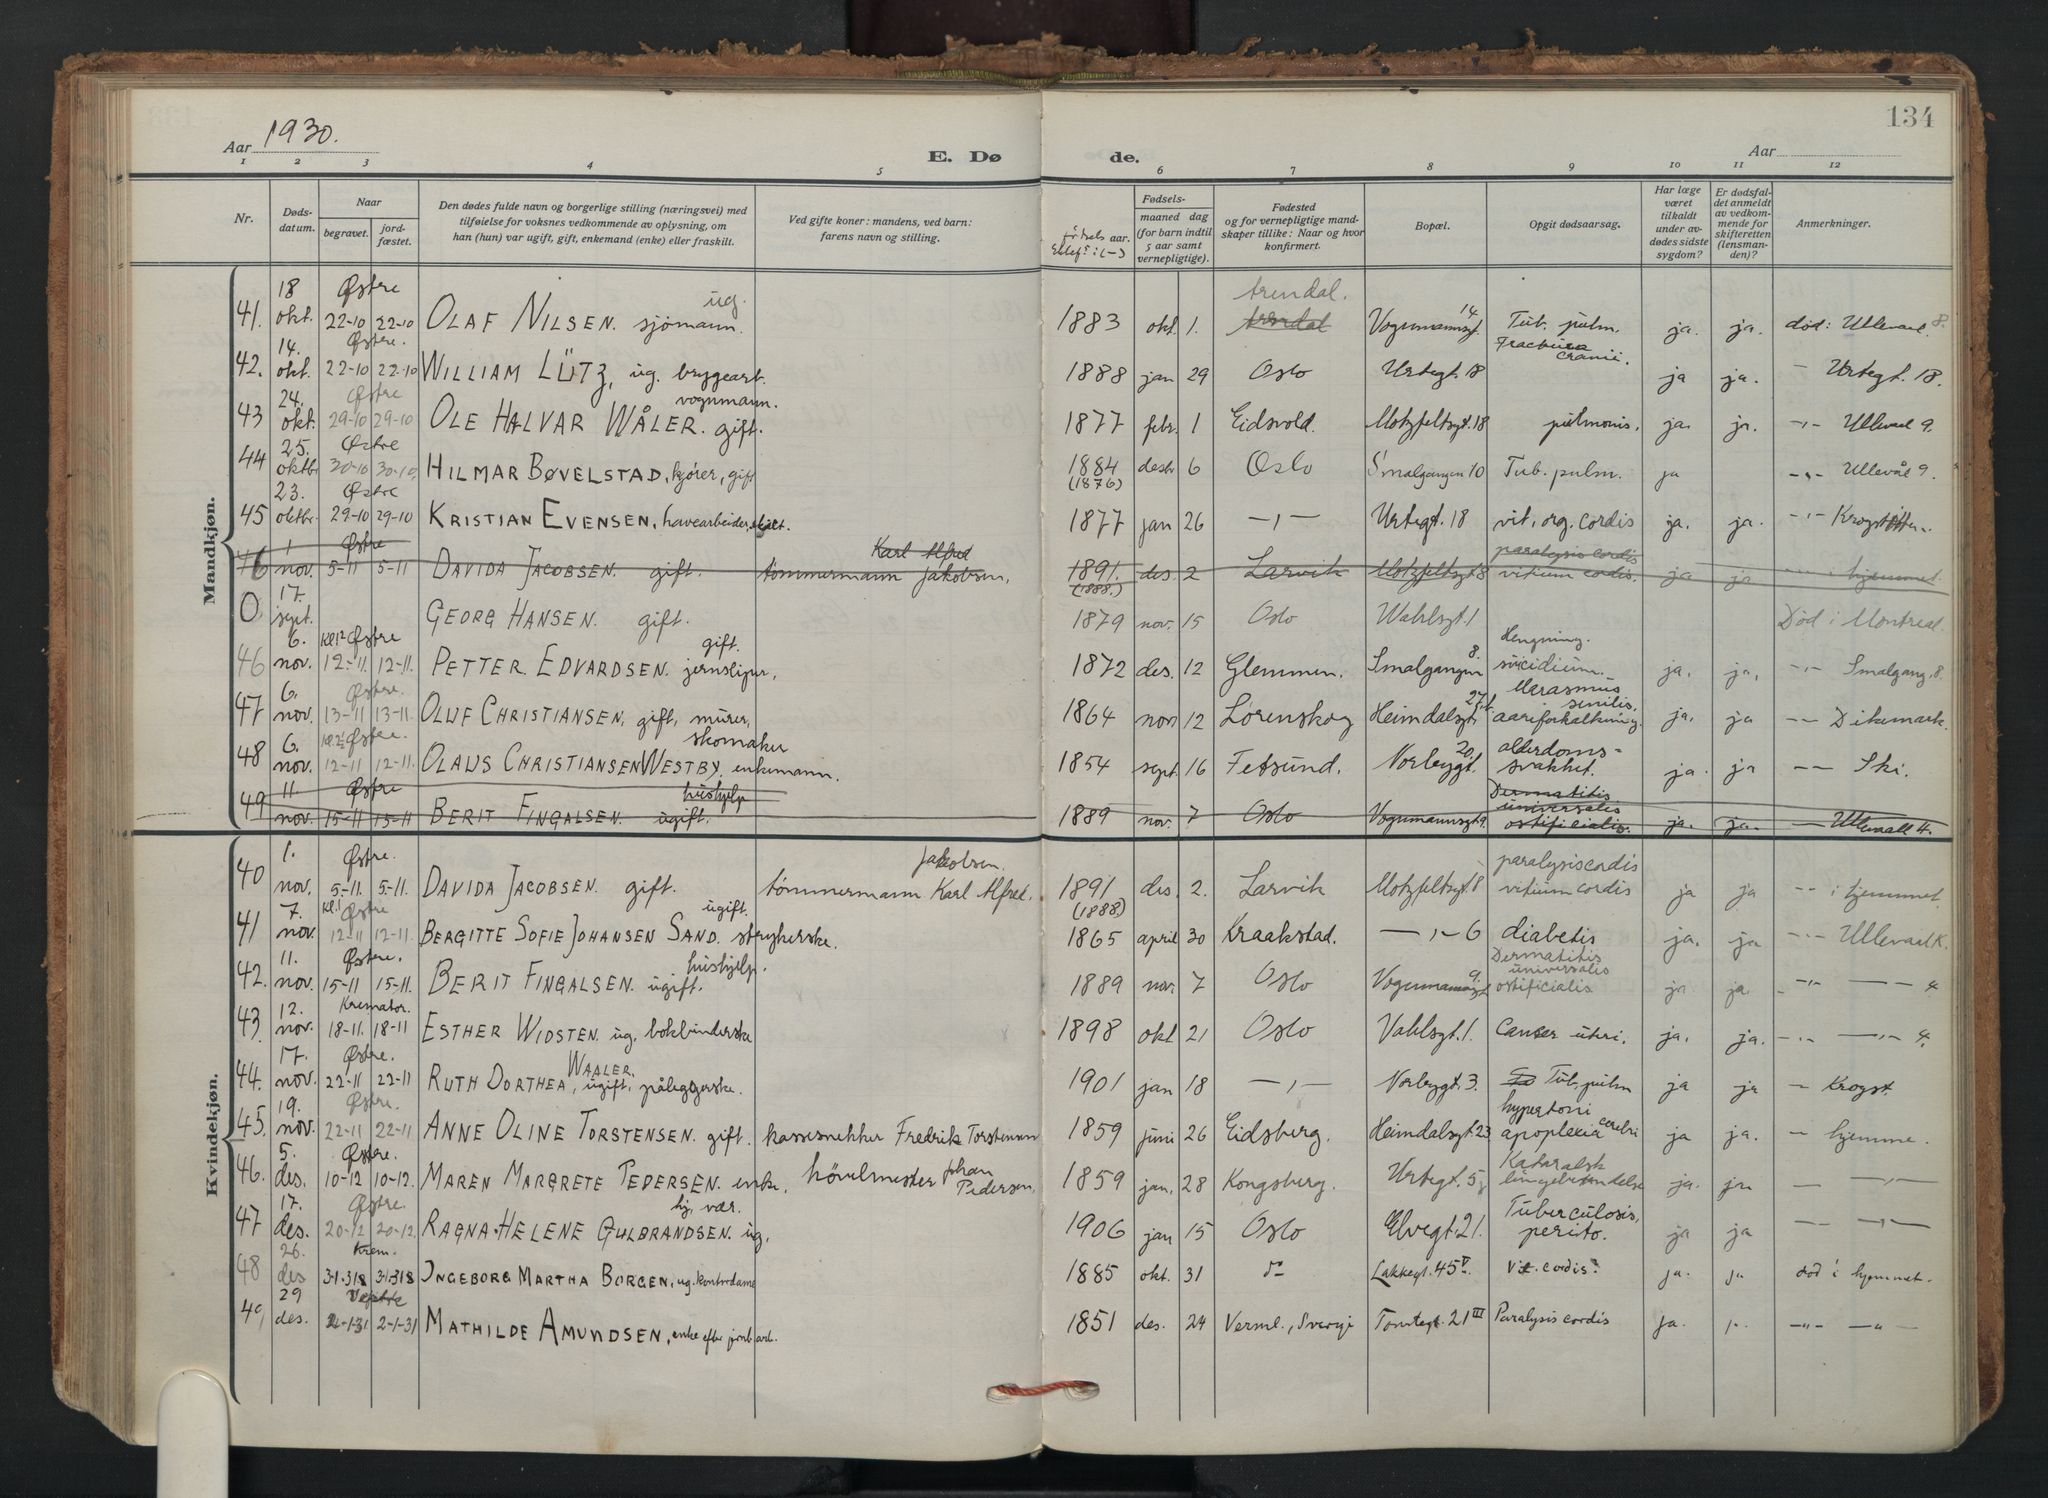 134
Aar 1930.
E. Dø de.
Aar
1 2 3 4 5 6 7 8 9 10 11 12
Nr.
Døds-
datum.
Naar
begravet.
jord-
fæstet.
Den dødes fulde navn og borgerlige stilling (næringsvei) med
tilføielse for voksnes vedkommende av oplysning, om
han (hun) var ugift, gift, enkemand (enke) eller fraskilt.
Ved gifte koner: mandens, ved barn:
farens navn og stilling.
aar.
Fødsels-
maaned dag
(for barn indtil
5 aar samt
vernepligtige).
Fødested
og for vernepligtige mand-
skaper tillike: Naar og hvor
konfirmert.
Bopæl.
Opgit dødsaarsag.
Har læge
været
tilkaldt
under av-
dødes sidste
sygdom?
Er dødsfal-
det anmeldt
av vedkom-
mende for
skifteretten
(lensman-
den)?
Anmerkninger.
Mandkjøn.
18 Østre ug. Arendal. 14.
41. okt. 22-10 22-10 OLAF NILSEN. sjømann. 1883 okt. 1. Arendal Vognmannsgt. Tub. pulm. ja. ja. død: Ullevaal 8.
14. Østre. Fractura cranii.
42. okt. 22-10 22-10 WILLIAM LÜTZ, ug. bryggearb. 1888 jan 29 Oslo Urtegt. 18 ja ja. Urtegt. 18.
24. Østre vognmann.
43 okt. 29-10 29-10 OLE HALVAR WÅLER. gift. 1877 febr. 1 Eidsvold. Motzfeltsgt. 18 pulmonis. ja. ja. -,- Ullevaal 9.
25. Østre
44 oktbr 30-10 30-10. HILMAR BØVELSTAD, kjører, gift 1884 desbr 6 Oslo Smalgangen 10 Tub. pulm. ja -,- Ullevål 9.
23. Østre (1876)
45 oktbr. 29-10 29-10 KRISTIAN EVENSEN, havearbeider, 1877 jan 26 -,- Urtegt. 18 vit. org. cordis ja. ja. -,-
1 Østre Karl Alfred paralysis cordis
46 nov. 5-11 5-11 DAVIDA JACOBSEN. gift. tömmermann Jakobsen. 1891. des. 2 Larvik Motzfeltsgt 8 vitium cordis. ja ja hjemmet
17. (1888.)
0 sept. GEORG HANSEN. gift. 1879 nov. 15 Oslo Wahlsgt. 1 Død i Montreal.
6. kl.12 Østre gift. 8. Hengning.
46 nov. 12-11. 12-11. PETTER EDVARDSEN. jernsliper, 1872 des. 12 Glemmen. Smalgangen suicidium. ja. ja. -,- Smalgang. 8.
6. Østre. Marasmus senilis.
47 nov. 13-11 13-11. OLUF CHRISTIANSEN, gift, murer, 1864 nov 12 Lørenskog Heimdalsgt. 27 aareforkalkning. ja. ja -- Dikemark.
6. Østre. skomaker 20. alderdoms-
48 nov. 12-11 12-11. OLAUS CHRISTIANSEN WESTBY, enkemann. 1854 sept. 16 Fetsund. Norbygt. svakhet. ja. ja -- Ski.
11. Østre hushjelp Dermatitis universalis
49 nov. 15-11 15-11 BERIT FINGALSEN. ugift. 1889 nov. 7 Oslo Vognmannsgt 9. ostificialis. ja. ja. Ullevaal 4.
Kvindekjøn.
1. Østre. Jakobsen. paralysis cordis
40 nov. 5-11. 5-11. DAVIDA JACOBSEN. gift. tömmermann Karl Alfred. 1891 des. 2. Larvik Motzfeltsgt 8 vitium cordis ja ja -- i hjemmet.
7. kl.1 Østre ugift. (1888.)
41 nov. 12-11 12-11. BERGITTE SOFIE JOHANSEN SAND. strykerske. 1865 april 30 Kraakstad. -,- 6 diabetis ja. ja -- Ullevaal K.
11. Østre. hushjelp. 9. Dermatitis universalis
42. nov. 15-11 15-11. BERIT FINGALSEN. ugift. 1889 nov. 7 Oslo Vognmannsgt ostificialis. ja ja. -,- -- 4
12. Kremator.
43. nov. 18-11. 18-11 ESTHER WIDSTEN. ug. bokbinderske 1898 okt 21 Oslo Vahlsgt. 1. Cancer uteri. ja. ja. -,- -,- 4.
17. Østre. WAALER.
44. nov. 22-11 22-11 RUTH DORTHEA, ugift. påleggerske. 1901 jan 18 -,- Norbygt. 3. Tub. pulm ja ja - Krogst.
19. Østre. hypertoni
45. nov. 22-11 22-11 ANNE OLINE TORSTENSEN. gift. kassesnekker Fredrik Torstensen 1859 juni 26 Eidsberg. Heimdalsgt. 23 apoplexia cerebri ja ja. - hjemme.
5. Østre. Kataralsk
46. des. 10-12 10-12. MAREN MARGRETE PEDERSEN. enke. hövelmester Johan Pedersen. 1859 jan. 28 Kongsberg. Urtegt. 5 lungebetendelse ja. ja - -,-
17. Østre. hj. vær. Tuberculosis,
47 des. 20-12 20-12. RAGNA HELENE GULBRANDSEN. ug. 1906 jan 15 Oslo Elvegt. 21. perito. ja ja - -,-
26. Krem.
48 des 3-1-31 3-1-31 INGEBORG MARTHA BORGEN, ug. kontordame 1885 okt. 31 Lakkegt. 45 V Vit. cordis ja. ja død i hjemmet.
29 Vestre
49, des. 2-1-31 2-1-31 MATHILDE AMUNDSEN, enke efter jernb.arb. 1851 des. 24 Verml., Sverige Tomtegt. 21 III Paralysis cordis ja. -"- -"-